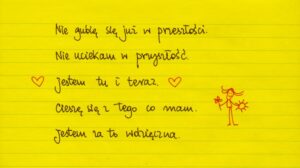 Nie gubię się już w przeszłości.
Nie uciekam w przyszłość.
Jestem tu i teraz.
Cieszę się z tego co mam.
Jestem za to wdzięczna.